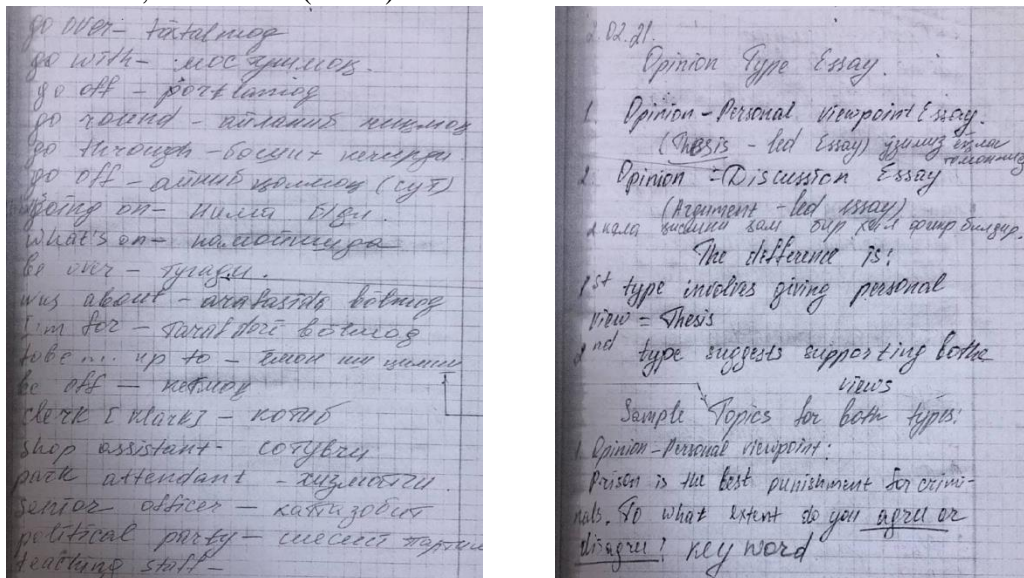 go over - taxtalmoq
go with - мос
go off - portlamoq
go round - айланиб чиқмоқ
go through - бошит кечирди.
go off - айниб қолмоқ (сут)
going on - нима бўл.
what's on - намойишда
be over - тугади.
was about - arafasida bolmoq
I'm for - tarafdori bolmoq
to be up to - ёмон иш қилиш
be off - кетмоқ
clerk [klark] - котиб
shop assistant - сотувчи
park attendant - хизматчи.
senior officer - катта зобит
political party - сиёсий партия
teaching staff -
2.02.21.
Opinion Type Essay.
1. Opinion - Personal viewpoint Essay.
(Thesis - led Essay)
2. Opinion = Discussion Essay
(Argument - led essay)
2 кала қисмни ҳам бир хил фикр билдир.
The difference is:
1st type involves giving personal
view = Thesis
2nd type suggests supporting bothe
views
Sample Topics for both types:
1 Opinion - Personal viewpoint:
Prison is the best punishment for crimi-
nals. To what extent do you agru or
disagru? key word